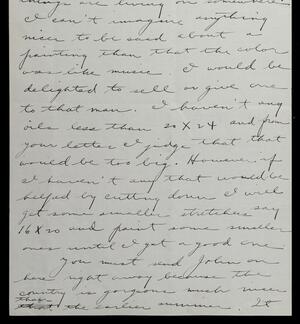 things are living on somewhere.
I can't imagine anything
nicer to be said about a
painting than that the color
was like music. I would be
delighted to sell or give one
to that man. I haven't any
oils less than 20 X 24 and from
your letter I judge that that
would be too big. However if
I haven't any that would be
helped by cutting down I will
get some smaller stretches say
16 X 20 and paint some smaller
ones until I get a good one.
You must send John on
here right away because the
country is gorgeous much nicer
than
that the earlier summer. It